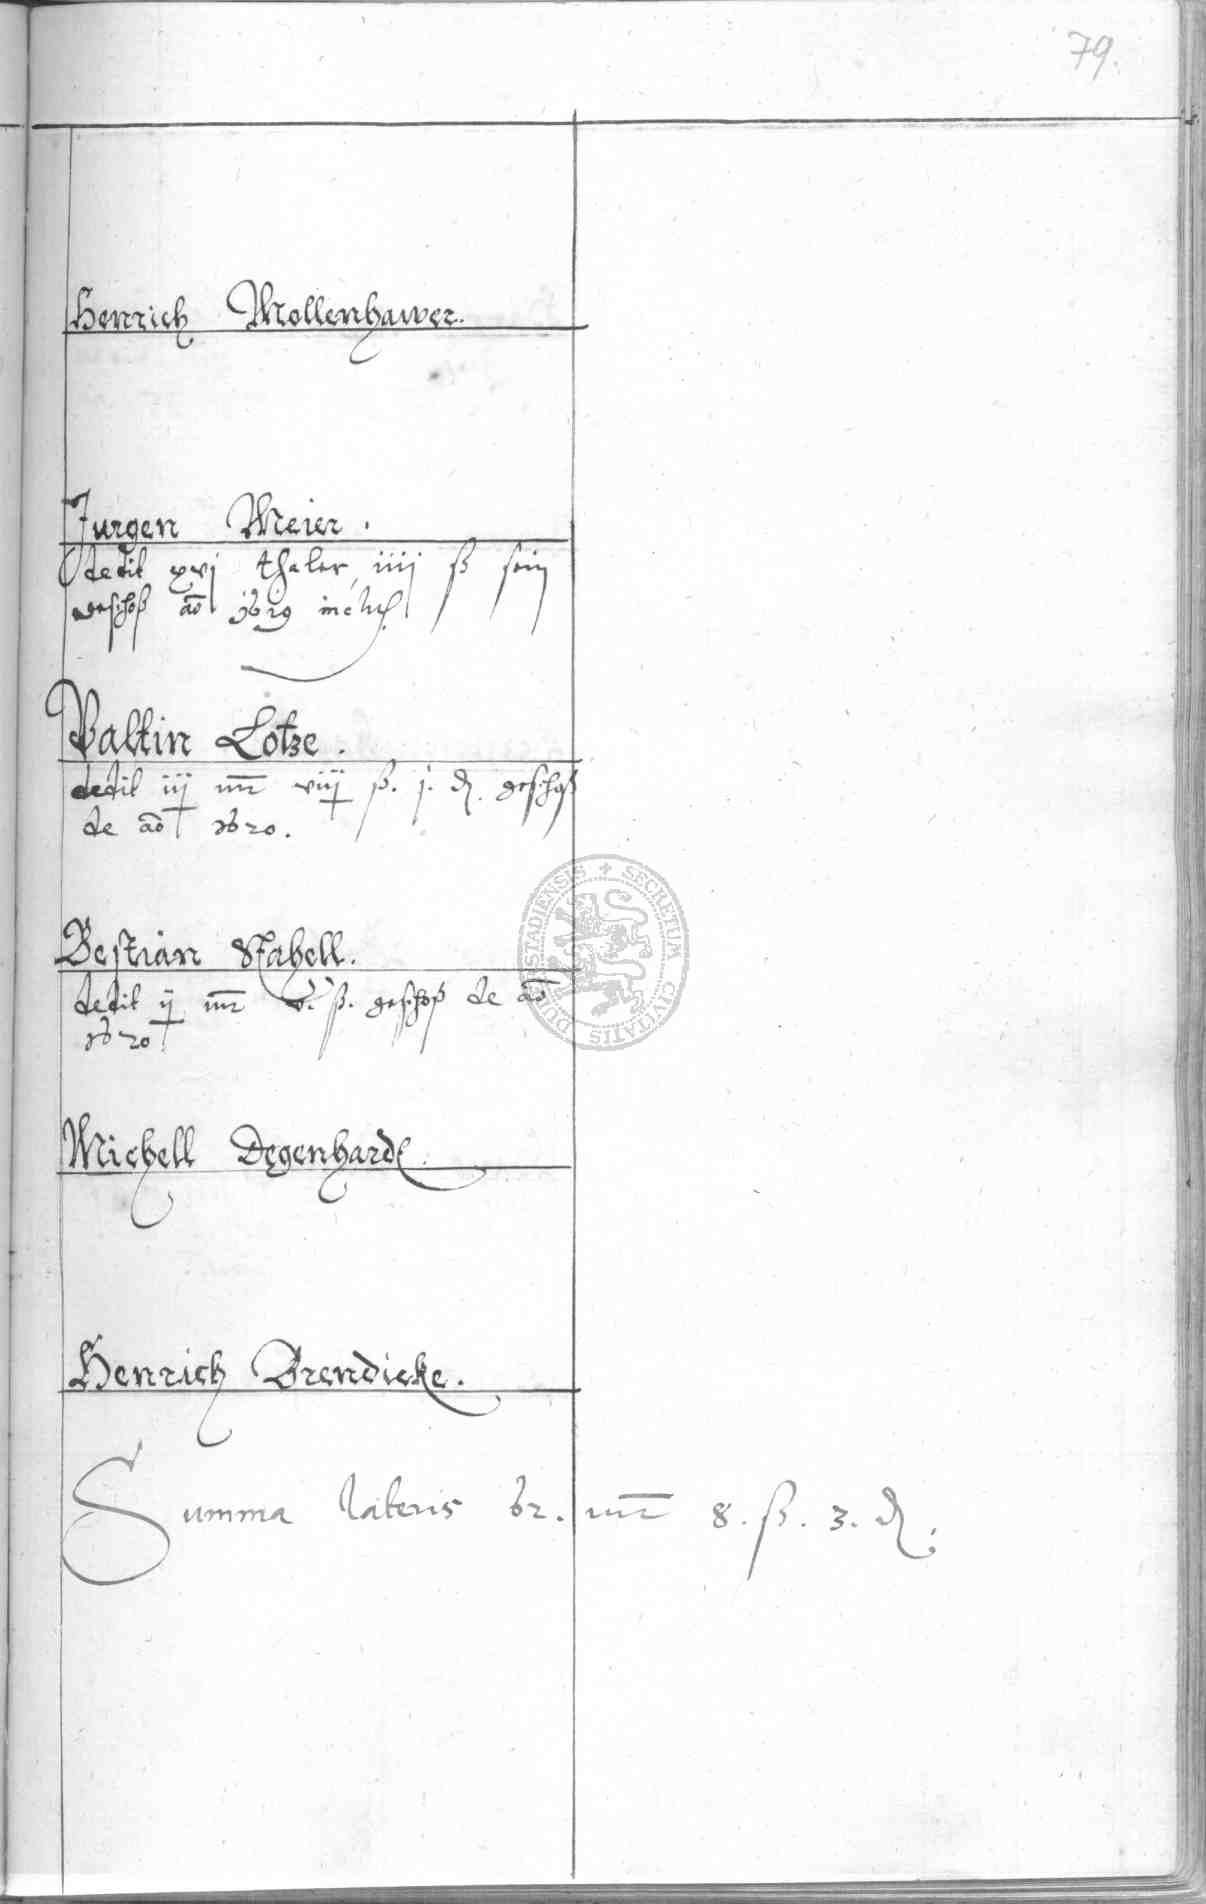 79.
Henrich Mollenhawer.
Jurgen Meier.
dedit xvj thaler iiij ß sein
geschoß ao 1619 incluß
Valtin Lotze.
dedit iij mr viij ß. j. d. geschoß
de ao 1620.
Bestian Stabell.
dedit ij mr v. ß. geschoß de ao
1620
Michell Degenhardt.
Henrich Brendicke.
Summa lateris 62. mr 8. ß. 3. d.
SECRETUM CIVITATIS DUDERSTADIENSIS